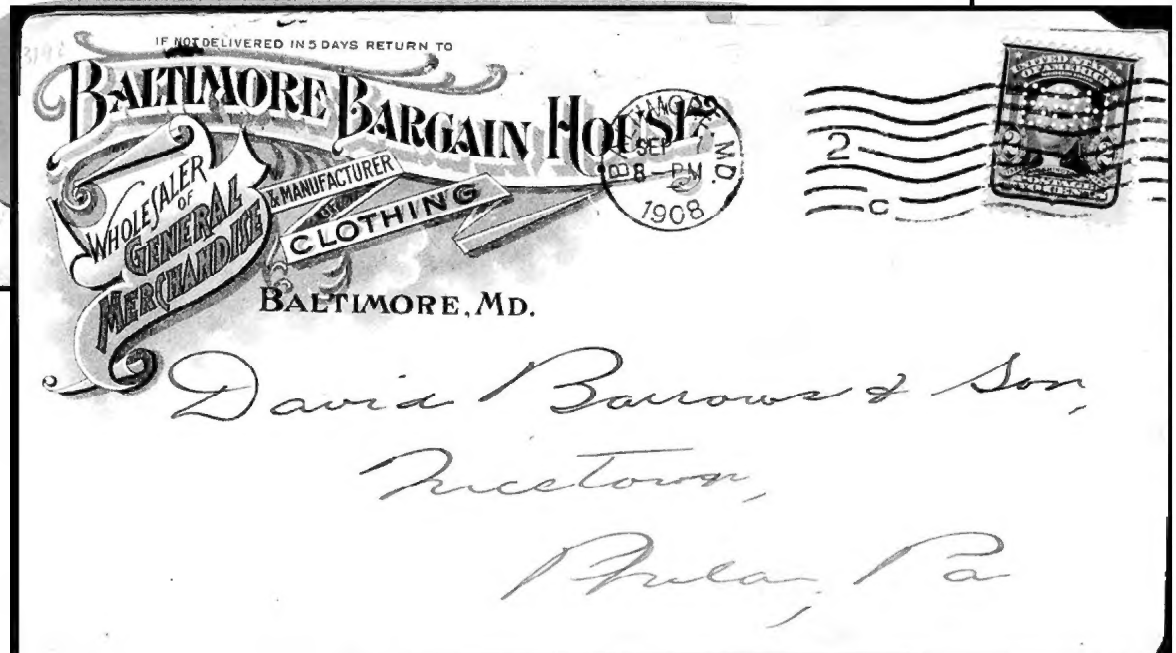 IF NOT DELIVERED IN 5 DAYS RETURN TO
BALTIMORE BARGAIN HOUSE
WHOLESALER
OF
GENERAL
MERCHANDISE
& MANUFACTURER
OF
CLOTHING
BALTIMORE, MD.
BALTIMORE, MD.
SEP 7
8-PM
1908
2
C
UNITED STATES
OF AMERICA
2 2
David Barrows & Son,
Nicetown,
Phila, Pa